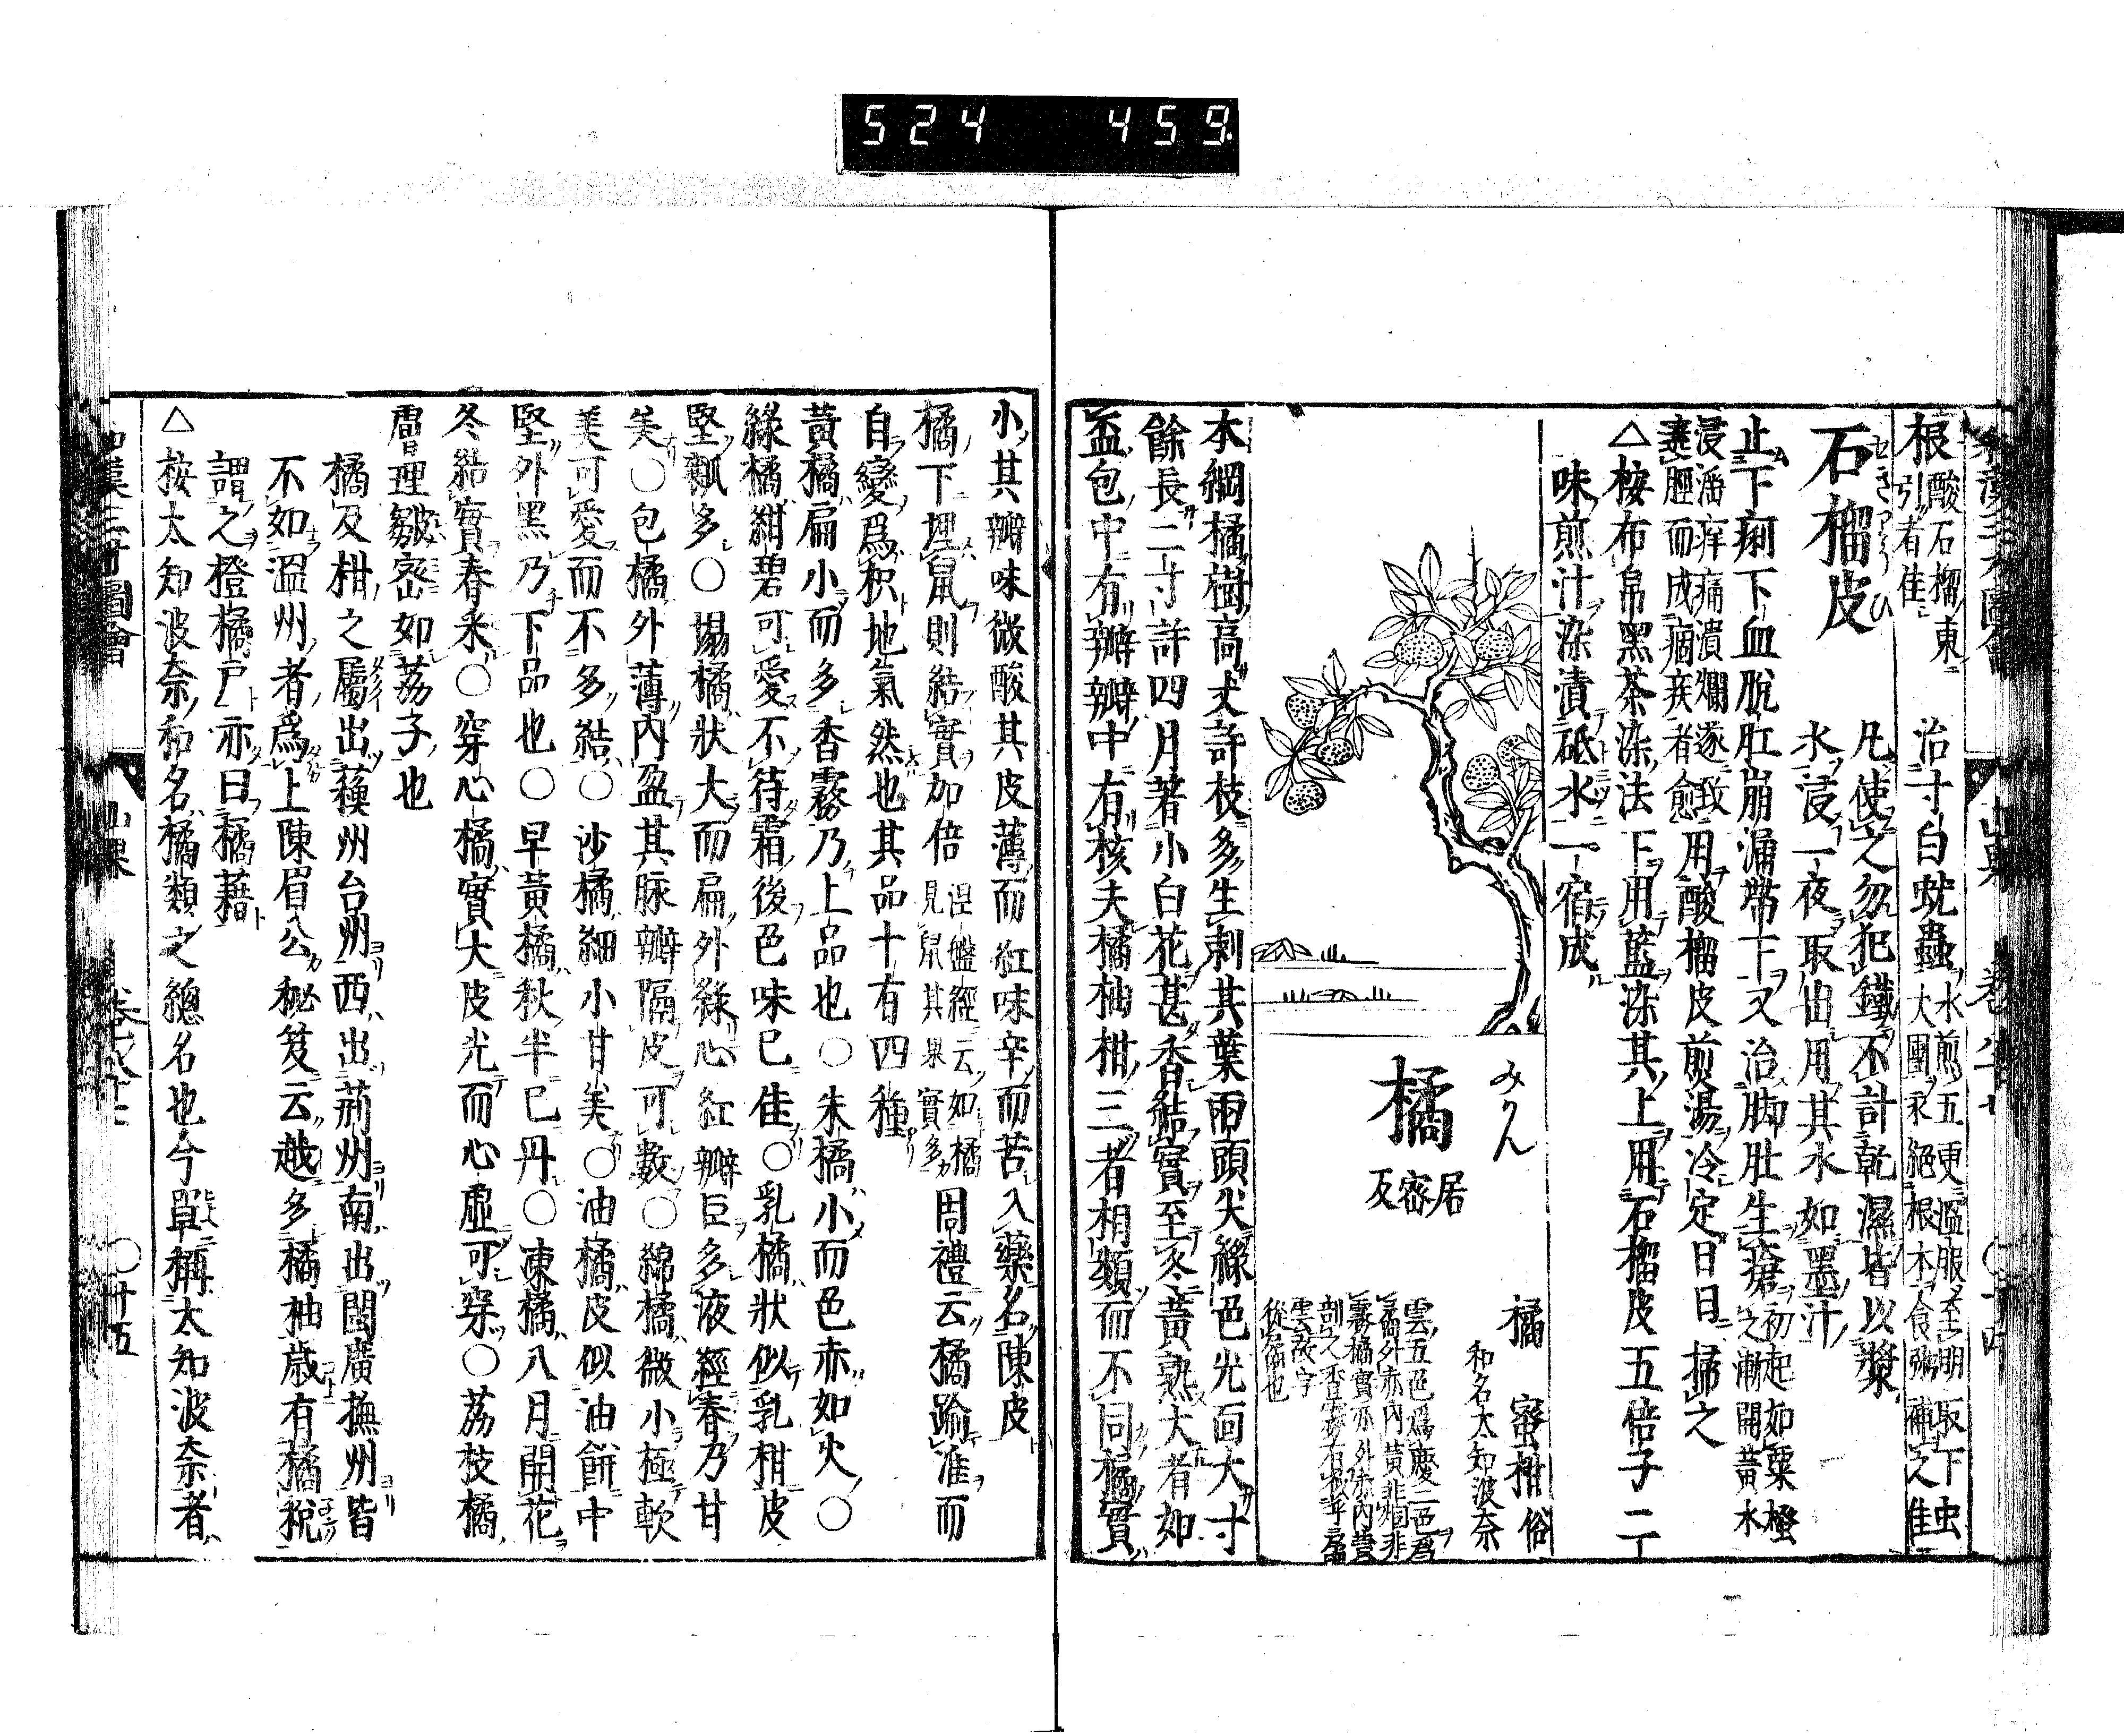 524 459
根 酸石榴東
引者佳
治寸白蚘蟲 水煎五更溫服至明取下虫
大團永絕根本食粥補之佳
石榴皮
せきりうひ
凡使之勿犯鐵不計乾濕皆以漿
水浸一夜取出用其水如墨汁
止下痢下血脫肛崩漏帶下又治脚肚生瘡 初起如粟搔
之漸開黃水
浸滛痒痛潰爛遂致
遶脛而成痼疾者愈
用酸榴皮煎湯冷定日日掃之
△按布帛黑茶染法下用藍染其上用石榴皮五倍子二
味煎汁染漬砥水一宿成
みかん
橘
居密反
橘 蜜柑俗
和名太知波奈
雲五色爲慶二色爲
矞外赤內黃非烟非
霧橘實亦外赤內黃
剖之香霧有似乎矞
雲故字
從矞也
本綱橘樹高丈許枝多生刺其葉兩頭尖綠色光面大寸
餘長二寸許四月著小白花甚香結實至冬黃熟大者如
盃包中有瓣瓣中有核夫橘柚柑三者相類而不同橘實
小其瓣味微酸其皮薄而紅味辛而苦入藥名陳皮
橘下埋鼠則結實加倍 涅槃經云如橘
見鼠其果實多
周禮云橘踰淮而
自變爲枳地氣然也其品十有四種
黃橘扁小而多香霧乃上品也○朱橘小而色赤如火○
綠橘紺碧可愛不待霜後色味已佳○乳橘狀似乳柑皮
堅瓤多○塌橘狀大而扁外綠心紅瓣巨多液經春乃甘
美○包橘外薄內盈其脉瓣隔皮可數○綿橘微小極軟
美可愛而不多結○沙橘細小甘美○油橘皮似油餅中
堅外黑乃下品也○早黃橘秋半已丹○凍橘八月開花
冬結實春釆○穿心橘實大皮光而心虛可穿○荔枝橘
膚理皺密如荔子也
橘及柑之屬出蘓州台州西出荊州南出閩廣撫州皆
不如溫州者爲上陳眉公秘笈云越多橘柚歲有橘稅
謂之橙橘戶亦曰橘藉
△按太知波奈和名橘類之總名也今單稱太知波奈者
和漢三才圖會 山果 卷之八十七 ○廿五